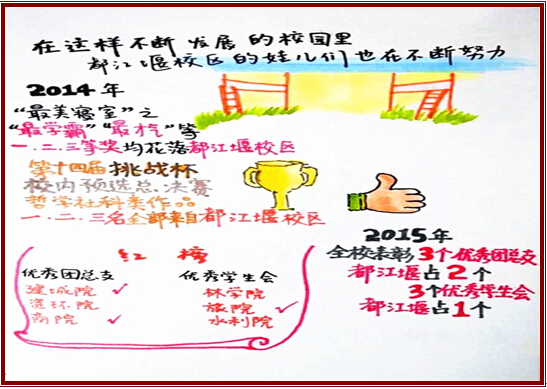 在这样不断发展的校园里
都江堰校区的娃儿们也在不断努力
2014年
“最美寝室”之
“最学霸”“最才气”等
一.二.三等奖均花落都江堰校区
第十四届挑战杯
校内预选总决赛
哲学社科类作品
一.二.三名全部来自都江堰校区
红榜
优秀团总支 优秀学生会
建城院 ✓ 林学院
资环院 旅院 ✓
商院 ✓ 水利院
2015年
全校表彰3个优秀团总支
都江堰占2个
3个优秀学生会
都江堰占1个